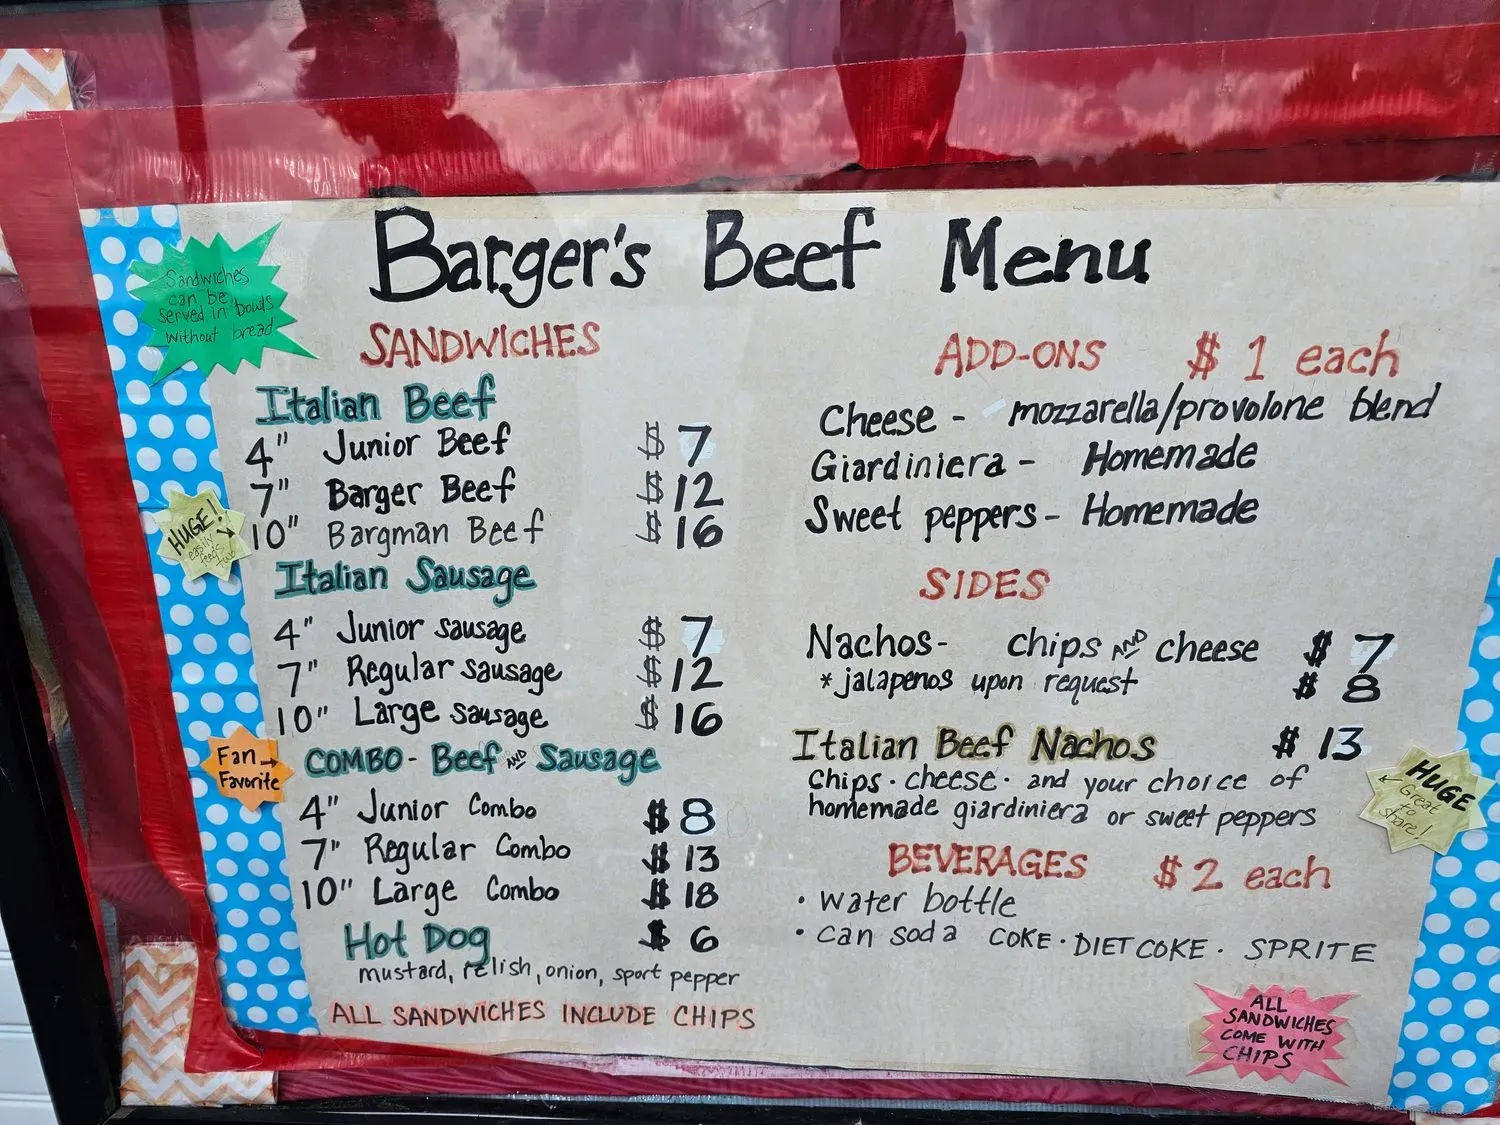 Barger's Beef Menu
Sandwiches
can be
served in bowls
without bread
SANDWICHES
Italian Beef
4" Junior Beef $7
7" Barger Beef $12
HUGE!
easily
feeds
two
10" Bargman Beef $16
Italian Sausage
4" Junior sausage $7
7" Regular sausage $12
10" Large sausage $16
Fan
Favorite
COMBO - Beef AND Sausage
4" Junior Combo $8
7" Regular Combo $13
10" Large Combo $18
Hot Dog $6
mustard, relish, onion, sport pepper
ALL SANDWICHES INCLUDE CHIPS
ADD-ONS $1 each
Cheese - mozzarella/provolone blend
Giardiniera - Homemade
Sweet peppers - Homemade
SIDES
Nachos - chips AND cheese $7
*jalapenos upon request $8
Italian Beef Nachos $13
chips · cheese · and your choice of
homemade giardiniera or sweet peppers
HUGE
Great
to
share!
BEVERAGES $2 each
• water bottle
• can soda COKE · DIET COKE · SPRITE
ALL
SANDWICHES
COME WITH
CHIPS